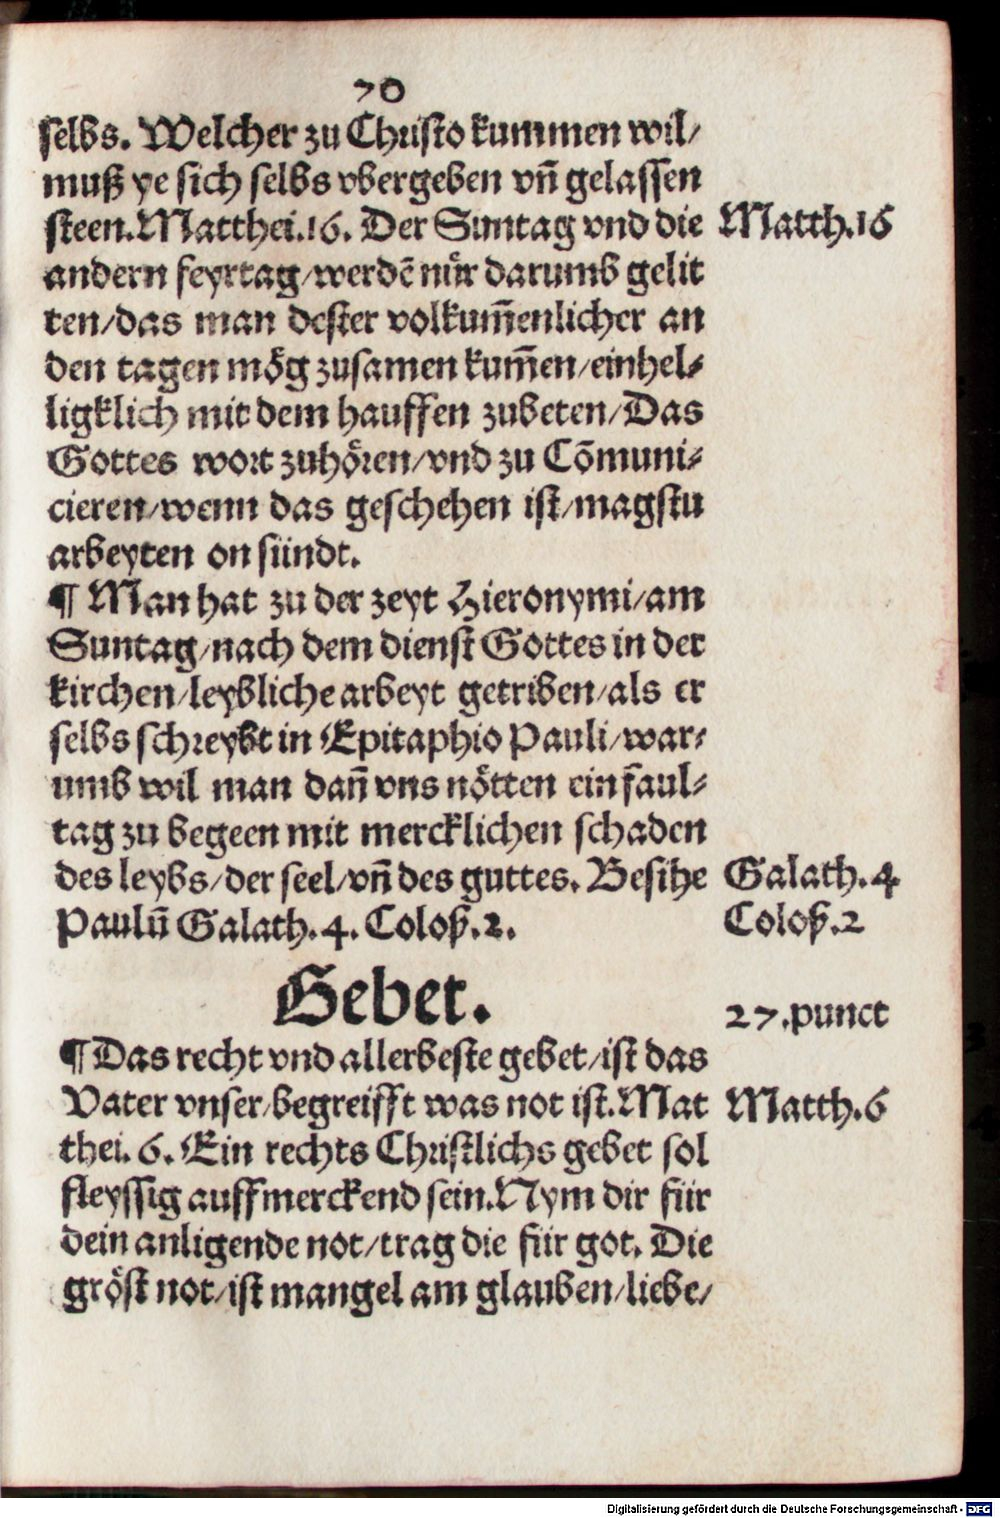 70
selbs. Welcher zu Christo kummen wil/
muß ye sich selbs vbergeben vñ gelassen
steen. Matthei.16. Der Suntag vnd die Matth.16
andern feyrtag/werdē nůr darumb gelit
ten/das man dester volkum̃enlicher an
den tagen mög zusamen kum̃en/einhel⸗
ligklich mit dem hauffen zubeten/Das
Gottes wort zuhören/vnd zu Cōmuni⸗
cieren/wenn das geschehen ist/magstu
arbeyten on sündt.
¶ Man hat zu der zeyt Hieronymi/am
Suntag/nach dem dienst Gottes in der
kirchen/leybliche arbeyt getriben/als er
selbs schreybt in Epitaphio Pauli/war⸗
umb wil man dañ vns nötten ein faul⸗
tag zu begeen mit mercklichen schaden
des leybs/der seel/vñ des guttes. Besihe Galath.4
Paulū Galath.4. Coloß.2. Coloß.2
Gebet. 27.punct
¶ Das recht vnd allerbeste gebet/ist das
Vater vnser/begreifft was not ist. Mat Matth.6
thei.6. Ein rechts Christlichs gebet sol
fleyssig auffmerckend sein. Nym dir für
dein anligende not/trag die für got. Die
gröst not/ist mangel am glauben/liebe/
Digitalisierung gefördert durch die Deutsche Forschungsgemeinschaft - DFG